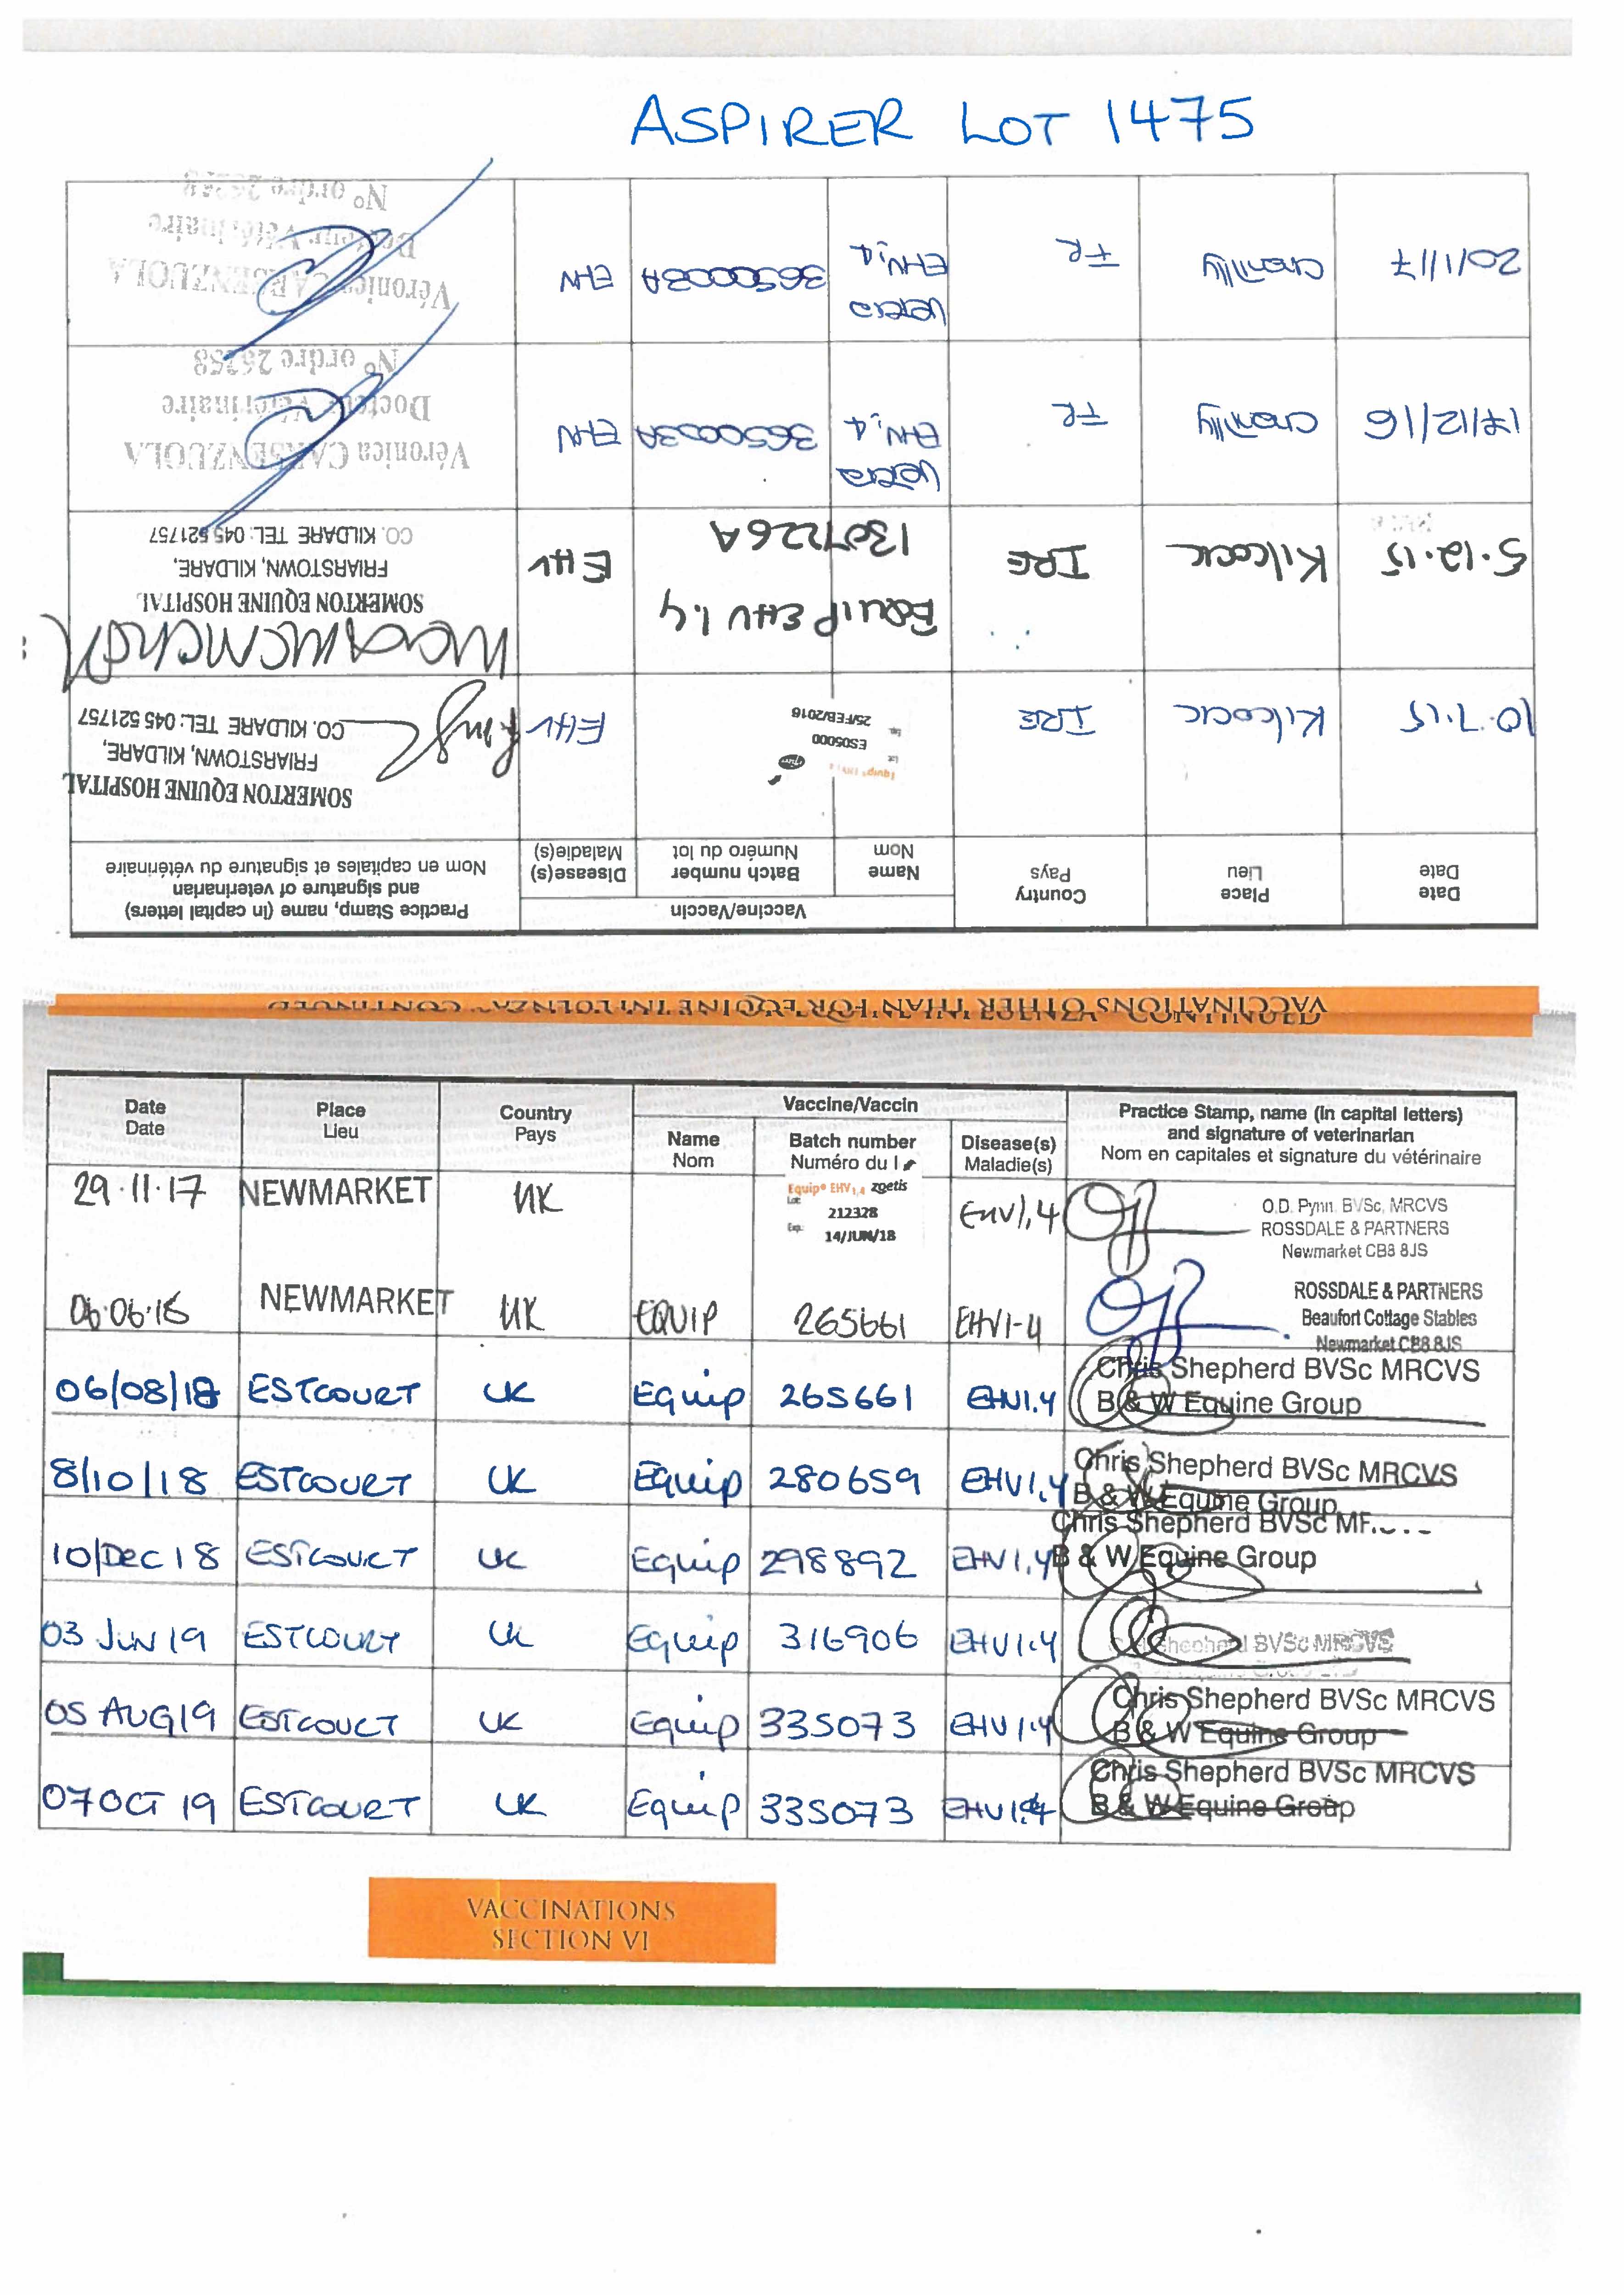 ASPIRER LOT 1475
VACCINATIONS OTHER THAN FOR EQUINE INFLUENZA - CONTINUED
Date Date
Place Lieu
Country Pays
Vaccine/Vaccin
Name Nom
Batch number Numéro du lot
Disease(s) Maladie(s)
Practice Stamp, name (in capital letters)
and signature of veterinarian
Nom en capitales et signature du vétérinaire
10.7.15 Kilcock IRE Equip® EHV 1,4 Lot ES05000 Exp 25/FEB/2016 EHV
SOMERTON EQUINE HOSPITAL
FRIARSTOWN, KILDARE,
CO. KILDARE TEL: 045 521757
5.12.15 Kilcock IRE EQUIP EHV 1.4 EHV
1307226A
SOMERTON EQUINE HOSPITAL
FRIARSTOWN, KILDARE,
CO. KILDARE TEL: 045 521757
17/12/16 FR EHV1,4 3650003A EHV
Véronica CARSENZUOLA
Docteur Vétérinaire
N° ordre 26258
20/1/17 FR EHV1,4 3650003A EHV
Véronica CARSENZUOLA
Docteur Vétérinaire
N° ordre 26258
Date Date
Place Lieu
Country Pays
Vaccine/Vaccin
Name Nom
Batch number Numéro du l
Disease(s) Maladie(s)
Practice Stamp, name (in capital letters)
and signature of veterinarian
Nom en capitales et signature du vétérinaire
29.11.17 NEWMARKET UK Equip® EHV1,4 zoetis EHV1,4
Lot: 212328
Exp: 14/JUN/18
O.D. Pynn. BVSc, MRCVS
ROSSDALE & PARTNERS
Newmarket CB8 8JS
06.06.18 NEWMARKET UK EQUIP 265661 EHV1-4
ROSSDALE & PARTNERS
Beaufort Cottage Stables
Newmarket CB8 8JS
06/08/18 ESTCOURT UK Equip 265661 EHV1.4
Chris Shepherd BVSc MRCVS
B & W Equine Group
8/10/18 ESTCOURT UK Equip 280659 EHV1.4
Chris Shepherd BVSc MRCVS
B & W Equine Group
10/Dec 18 ESTCOURT UK Equip 298892 EHV1.4
Chris Shepherd BVSc
B & W Equine Group
03 JUN 19 ESTCOURT UK Equip 316906 EHV1.4
Shepherd BVSc MRCVS
05 AUG 19 ESTCOURT UK Equip 335073 EHV1.4
Chris Shepherd BVSc MRCVS
B & W Equine Group
07 OCT 19 ESTCOURT UK Equip 335073 EHV1.4
Chris Shepherd BVSc MRCVS
B & W Equine Group
VACCINATIONS
SECTION VI